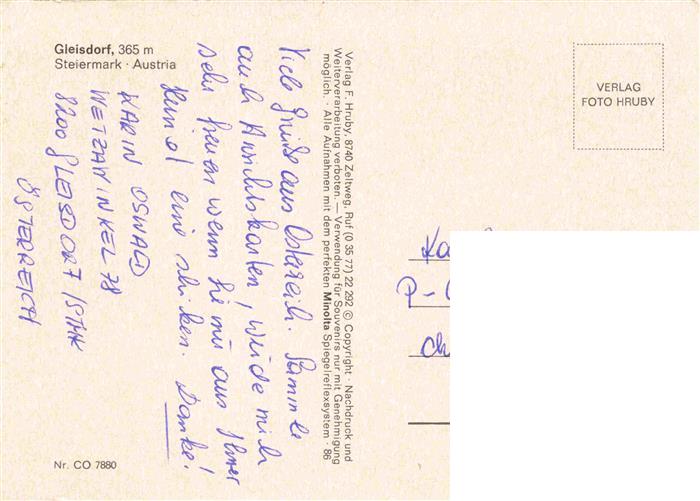 Gleisdorf, 365 m
Steiermark · Austria
Viele Grüße aus Österreich. Sammle
auch Ansichtskarten, würde mich
sehr freuen wenn Sie mir aus Ihrer
eine schicken. Danke!
KARIN OSWALD
WETZAWINKEL 78
8200 GLEISDORF / STMK
ÖSTERREICH
Verlag F. Hruby, 8740 Zeltweg, Ruf (0 35 77) 22 292 © Copyright · Nachdruck und
Weiterverarbeitung verboten. — Verwendung für Souvenirs nur mit Genehmigung
möglich. · Alle Aufnahmen mit dem perfekten Minolta Spiegelreflexsystem · 86
VERLAG
FOTO HRUBY
Ka
P-
Ch
Nr. CO 7880